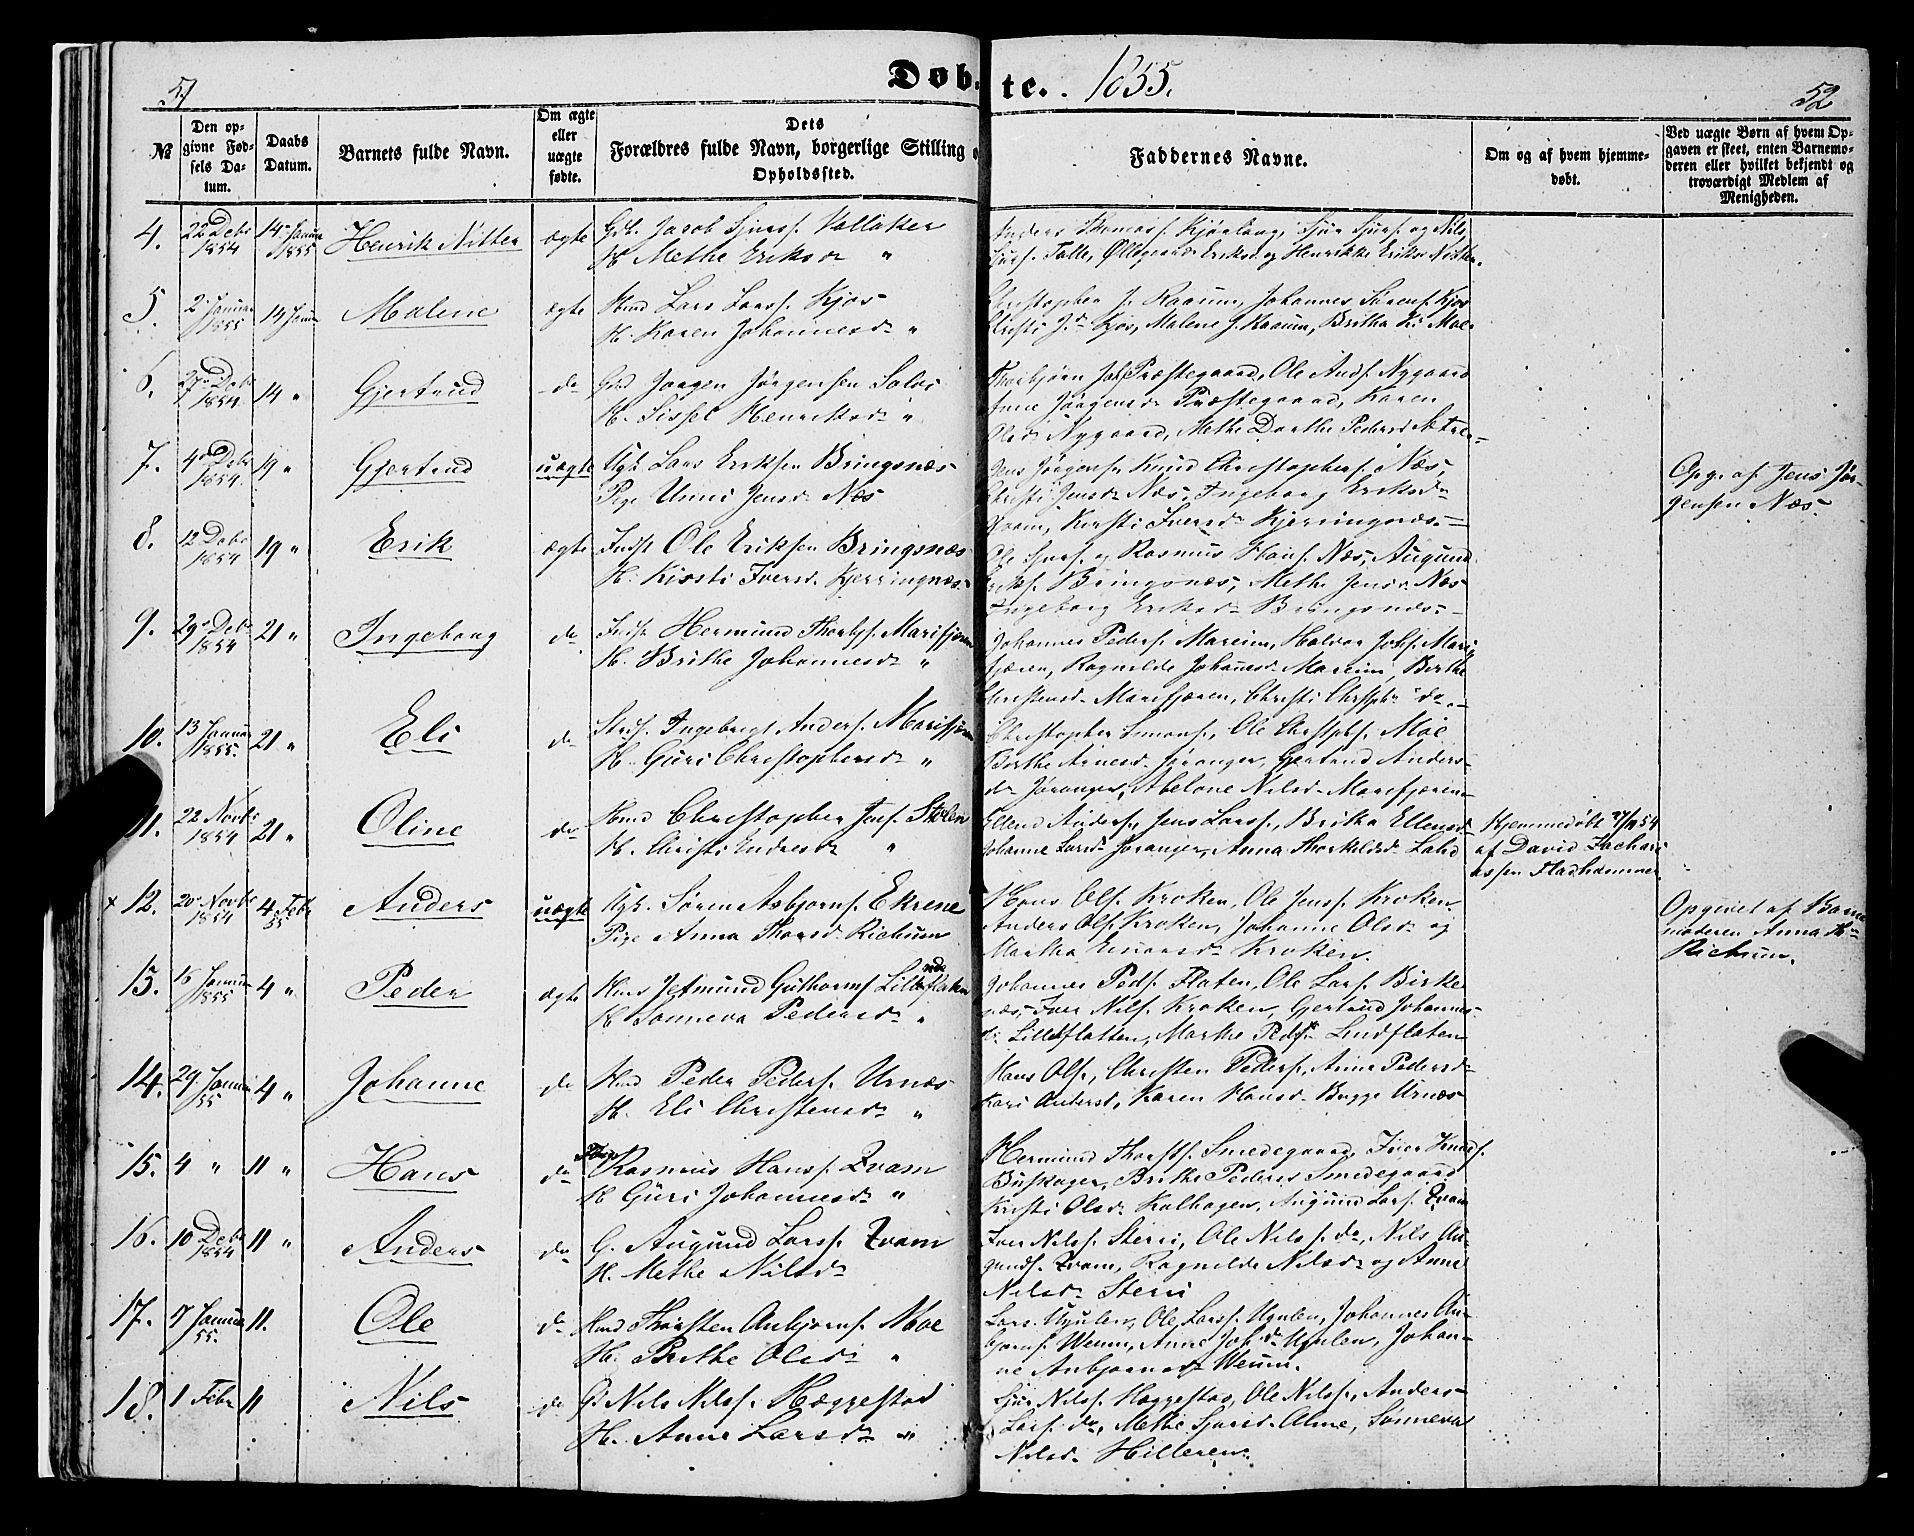 51
Døbte. 1855.
52
№
Den opgivne Fødsels Datum.
Daabs Datum.
Barnets fulde Navn.
Om ægte eller uægte fødte.
Dets Forældres fulde Navn, borgerlige Stilling og Opholdssted.
Faddernes Navne.
Om og af hvem hjemmedøbt.
Ved uægte Børn af hvem Opgaven er skeet, enten Barnemoderen eller hvilket bekjendt og troværdigt Medlem af Menigheden.
4. 22 Debr 1854 14 Januar 1855 Henrik Nitter ægte Gdb. Jacob Sjurs. Vollaker
H. Methe Eriksdr "
Anders Thomass. Kjørlaug, Sjur Sjurs. og Nils
Sjurs. Talle, Øllegaard Eriksd. og Henrikke Eriksd. Nitter.
5. 2 Januar 1855 14 Januar Malene ægte Hmd Lars Larss. Kjos
H. Karen Johannesdr "
Christopher J. Raaum, Johannes Sørens. Kjos
Christi J.dr Kjos, Malene J. Raaum, Britha Moe
6. 27 Debr 1854 14 " Gjertrud do Gbd Jørgen Jørgensen
H. Sissel Henriksdr "
Thorbjørn Præstegaard, Ole Ands. Nygaard
Anne Jørgensdr Præstegaard, Karen
Olsdr Nygaard, Methe Dorthe Pedersd.
7. 4 Debr 1854 19 " Gjertrud uægte Ugk. Lars Eriksen Bringsnæs
Pige Unni Jensdr Næs
Jens Jørgens. Knud Christophers. Næs,
Christi Jensdr Næs, Ingeborg Eriksdr
Kersti Iversdr Kjerringnæs.
Opg. af Jens Jørgensen Næs.
8. 12 Debr 1854 19 " Erik ægte Indst Ole Eriksen Bringsnæs
H. Kisti Iversd. Kjerringnæs
Ole Sjurs. og Rasmus Hans. Næs, Augund
Eriks. Bringsnæs, Methe Jensdr Næs
Ingeborg Eriksdr Bringsnæs
9. 29 Debr 1854 21 " Ingeborg do Indst Hermund Thorbjs. Marifjøren
H. Brithe Johannesdr "
Johannes Peders. Mareim, Halvor Johs. Marifjæren, Ragnilde Johanesd. Mareim, Birthe
Christensd. Marefjæren, Christi Christphdr do
10. 13 Januar 1855 21 " Eli do Strs. Ingebrigt Anders. Marifjøren
H. Guri Christophersdr "
Christopher Simons., Ole Christphs. Moe
Birthe Arnesd. Joranger, Gjertrud Andersdr Joranger, Abelone Nilsd. Marefjæren
11. 22 Novbr 1854 21 " Oline do Hmd Christopher Jons. Stolen
H. Christi Endresdr "
Ellend Anders., Jens Larss., Britha Ellensdr
Johanne Larsdr Joranger, Anna Thorkildsd. Lahd
Hjemmedøbt 54
af David Zachariassen Fladhammer
x 12. 20 Novbr 1854 4 Febr 55 Anders uægte Ugk. Søren Asbjørns. Ekrene
Pige Anna Thorsd. Richum
Hans Ols. Kroken, Ole Jenss. Kroken
Anders Ols. Kroken, Johanne Olsdr og
Martha Kroken.
Opgivet af Barnemoderen Anna Th.dr Richum.
13. 16 Januar 1855 4 " Peder ægte Hmd Jetmund Guthorms. Lilleflaten
H. Sønneva Pedersdr "
Johannes Peds. Flaten, Ole Lars. Birkenæs, Iver Nils. Kroken, Gjertrud Johannesdr Lilleflatten, Marthe Pedsdr Lindflaten
14. 29 Januar 55 4 " Johanne do Hmd Peder Peders. Urnæs
H. Eli Christensdr "
Hans Ols., Christen Peders., Anna Pedersdr
Kari Andersd., Karen Hansd. Bugge Urnæs
15. 4 " 11 " Hans do Rasmus Hans. Qvam
H Guri Johannesdr "
Hermund Thorsts. Smedegaard, Iver Knuds.
Buskager, Brithe Peders Smedegaard
Kirsti Olsdr Kalhagen, Augund Lars. Qvam
16. 10 Debr 1854 11 " Anders do G. Augund Larss. Qvam
H. Methe Nilsdr
Iver Nilss. Steri, Ole Nilss. do, Nils Augunds. Qvam, Ragnilde Nilsdr og Anne
Nilsdr Steri
17. 7 Januar 55. 11. Ole do Hmd Thorsten Anbjørns. Moe
H. Brithe Olsdr "
Lars Ugulen, Ole Larss. Ugulen, Johannes Anbjørns. Weum, Anne Joh.dr Ugulen, Johanne Anbjørnsdr Weum.
18. 1 Febr 11 Nils do G. Nils Nilss. Hæggestad
H. Anne Larsdr "
Sjur Nilss. Hæggestad, Ole Nilss., Anders
Lars. do, Methe Sjursd. Alme, Sønneva
Nilsd. Hilleren